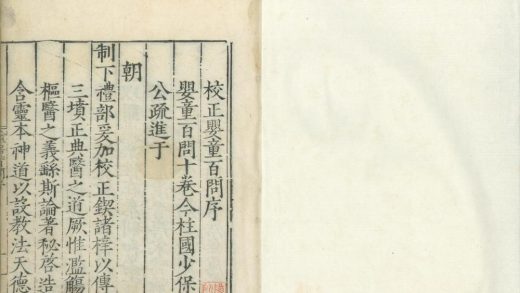 校正嬰童百問序
嬰童百問十卷今柱國少保
公疏進于
朝
制下禮部爰加校正鍥諸梓以傳
三墳正典醫之道厥惟濫觴
樞醫之義繇斯論著秘啓造
含靈本神道以設教法天德